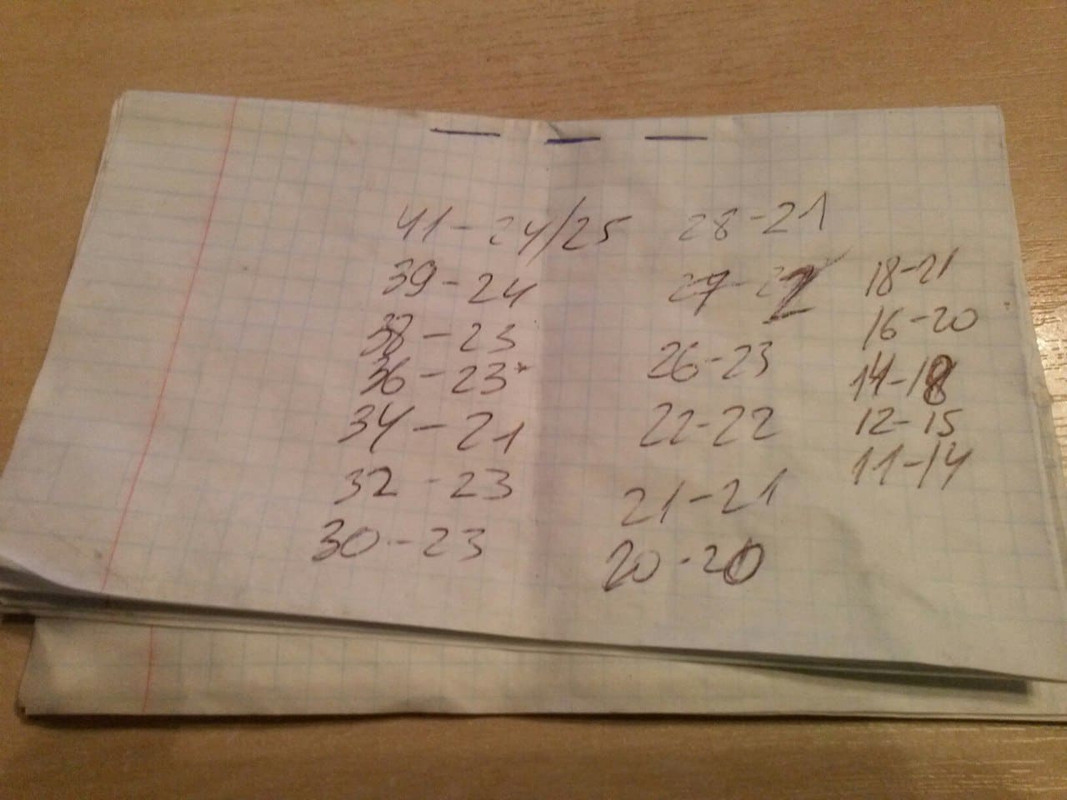 41-24/25
39-24
38-23
36-23*
34-21
32-23
30-23
28-21
26-23
22-22
21-21
20-20
18-21
16-20
14-18
12-15
11-14